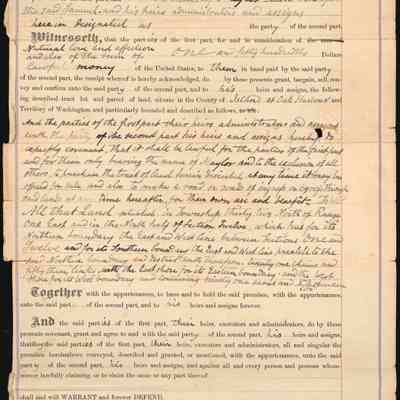 the said Samuel and his heirs administrators and assigns
herein designated as the party of the second part.
Witnesseth, that the parties of the first part, for and in consideration of the
Natural Love and affection
and also of the sum of One Dollars
money of the United States, to them in hand paid by the party
of the second part, the receipt whereof is hereby acknowledged, do by these presents grant, bargain, sell, con-
vey and confirm unto the party of the second part, and to his heirs and assigns, the follow-
ing described tract lot and parcel of land, situate in the County of Island at Oak Harbour and
Territory of Washington, and particularly bounded and described as follows,
And the parties of the first part their heirs, administrators and assigns
with the party of the second part his heirs and assigns hereby
covenant, that it shall be lawful for the parties of the first part
and for them only bearing the name of Maylor and to the exclusion of all
others, the tract of land herein described at any time
and also to make a road in and
said lands at any time hereafter, for their own use and benefit. To Wit
All that Land situated in Township thirty two North of Range
One East and in the North half of Section Twelve, which has for its
Northern boundary the East and West line between Sections One and
Twelve and for its Southern bound an East and West line parallel to the
said Northern boundary and distant south therefrom twenty one chains and
fifty three links, with the East shore for its Eastern boundary and the West
shore for its West boundary and containing twenty one acres and
Together with the appurtenances, to have and to hold the said premises, with the appurtenances,
unto the said part of the second part, and to his heirs and assigns forever.
And the said parties of the first part, their heirs, executors and administrators, do by these
presents covenant, grant and agree to and with the said party of the second part, his heirs and assigns,
that the said parties of the first part, their heirs, executors and administrators, all and singular the
premises hereinabove conveyed, described and granted, or mentioned, with the appurtenances, unto the said
party of the second part, his heirs and assigns, and against all and every person and persons whom-
soever lawfully claiming, or to claim the same or any part thereof
shall and will WARRANT and forever DEFEND.